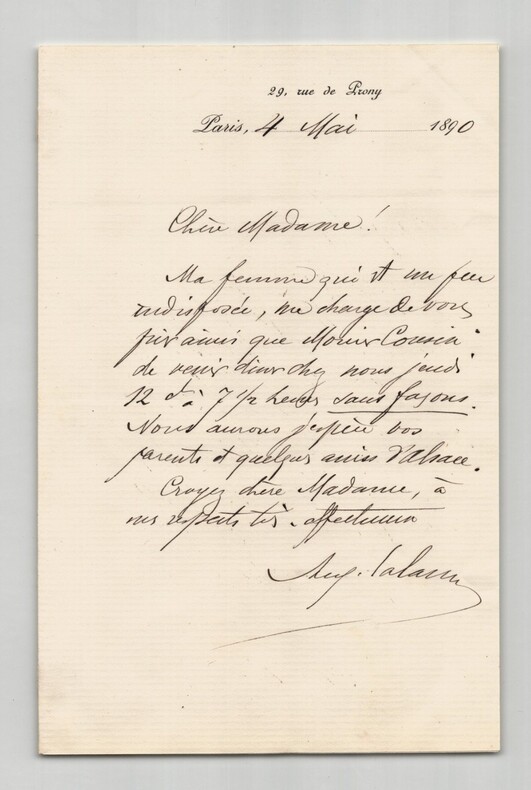 29, rue de Prony
Paris, 4 Mai 1890
Chère Madame!
Ma femme qui est un peu
indisposée, me charge de vous
prier ainsi que Monsieur Cousin
de venir diner chez nous jeudi
12 ct à 7 1/2 heures sans façons.
Nous aurons j'espère vos
parents et quelques amis d'Alsace.
Croyez chère Madame, à
mes respects très affectueux
Aug. Lalance